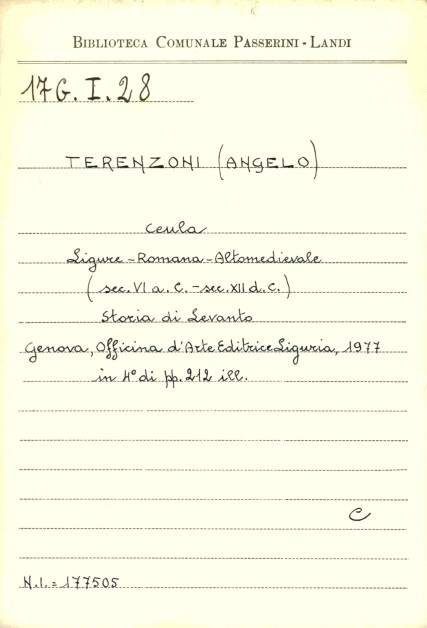 BIBLIOTECA COMUNALE PASSERINI - LANDI
17G. I. 28
TERENZONI (ANGELO)
Ceula
Ligure - Romana - Altomedievale
( sec. VI a. C. - sec. XII d. C. )
Storia di Levanto
Genova, Officina d'Arte Editrice Liguria, 1977
in 4° di pp. 212 ill.
C
N.I. = 177505